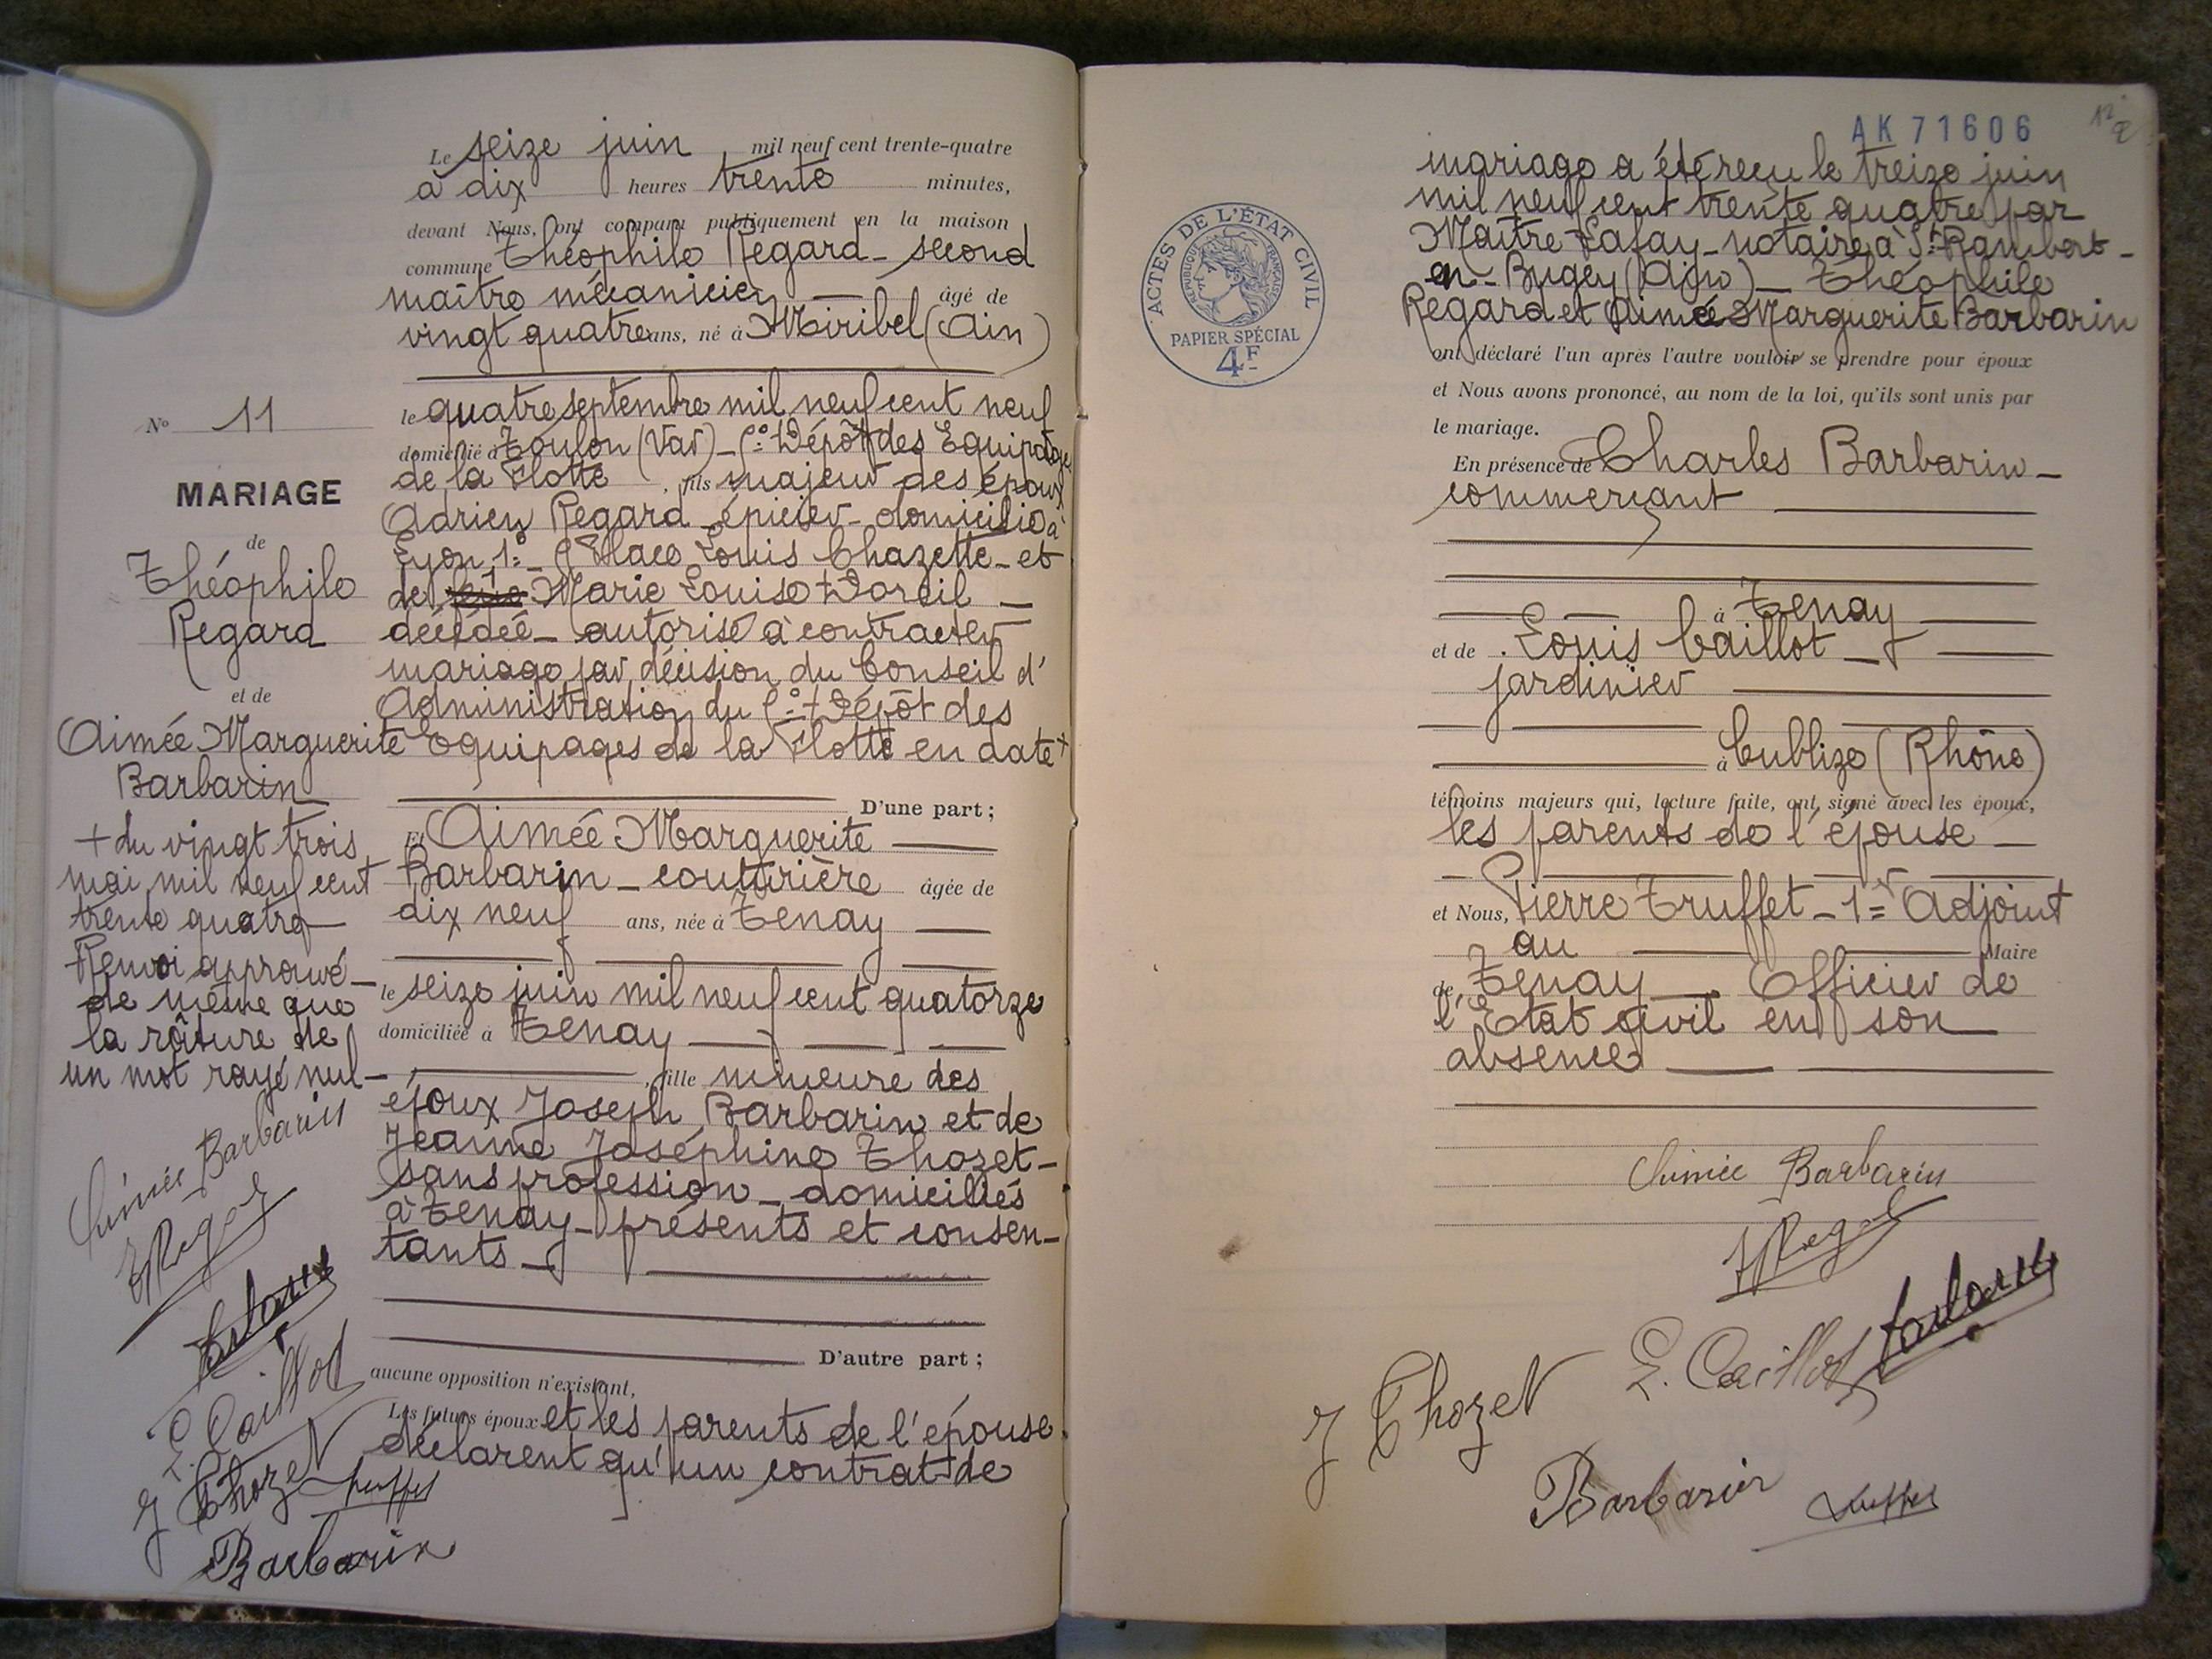 Le seize juin mil neuf cent trente-quatre
à dix heures trente minutes,
devant Nous, ont comparu publiquement en la maison
commune Théophile Regard _ second
maître mécanicien — âgé de
vingt quatre ans, né à Miribel (Ain)
le quatre septembre mil neuf cent neuf _
domicilié à Toulon (Var) _ Dépôt des Equipages
de la Flotte , fils majeur des époux
Adrien Regard _ épicier _ domicilié à
Lyon 1º _ Place Louis Chazette _ et
de Marie Louise —
décédée _ autorisé à contracter
mariage par décision du Conseil d'
Administration du Dépôt des
Equipages de la Flotte en date +
D'une part ;
Et Aimée Marguerite —
Barbarin _ couturière âgée de
dix neuf ans, née à Tenay —
le seize juin mil neuf cent quatorze
domiciliée à Tenay —
, fille mineure des
époux Joseph Barbarin et de
Jeanne Joséphine Thozet _
sans profession _ domiciliés
à Tenay _ présents et consen-
tants _
D'autre part ;
aucune opposition n'existant,
Les futurs époux et les parents de l'épouse
déclarent qu'un contrat de
Nº 11
MARIAGE
de
Théophile
Regard
et de
Aimée Marguerite
Barbarin
+ du vingt trois
mai mil neuf cent
trente quatre
Renvoi approuvé _
de même que
la râture de
un mot rayé nul _
Aimée Barbarin
L. Caillot
J Thozet
Truffet
Barbarin
AK 71606
ACTES DE L'ÉTAT CIVIL
RÉPUBLIQUE FRANÇAISE
PAPIER SPÉCIAL
4F
mariage a été reçu le treize juin
mil neuf cent trente quatre par
Maître Lafay _ notaire à St Rambert _
en _ Bugey (Ain) _ Théophile
Regard et Aimée Marguerite Barbarin
ont déclaré l'un après l'autre vouloir se prendre pour époux
et Nous avons prononcé, au nom de la loi, qu'ils sont unis par
le mariage.
En présence de Charles Barbarin _
commerçant
à Tenay
et de Louis Caillot _
jardinier
à Cublize (Rhône)
témoins majeurs qui, lecture faite, ont signé avec les époux,
les parents de l'épouse _
et Nous, Pierre Truffet _ 1er Adjoint
au Maire
de Tenay _ Officier de
l'Etat civil en son
absence
Aimée Barbarin
L. Caillot
J Thozet
Barbarin
Truffet